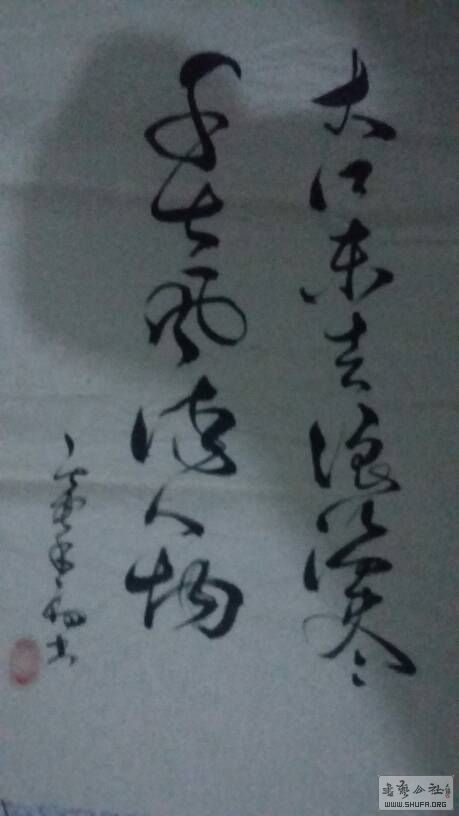 大江東去浪淘盡
千古風流人物
書藝公社
WWW.SHUFA.ORG